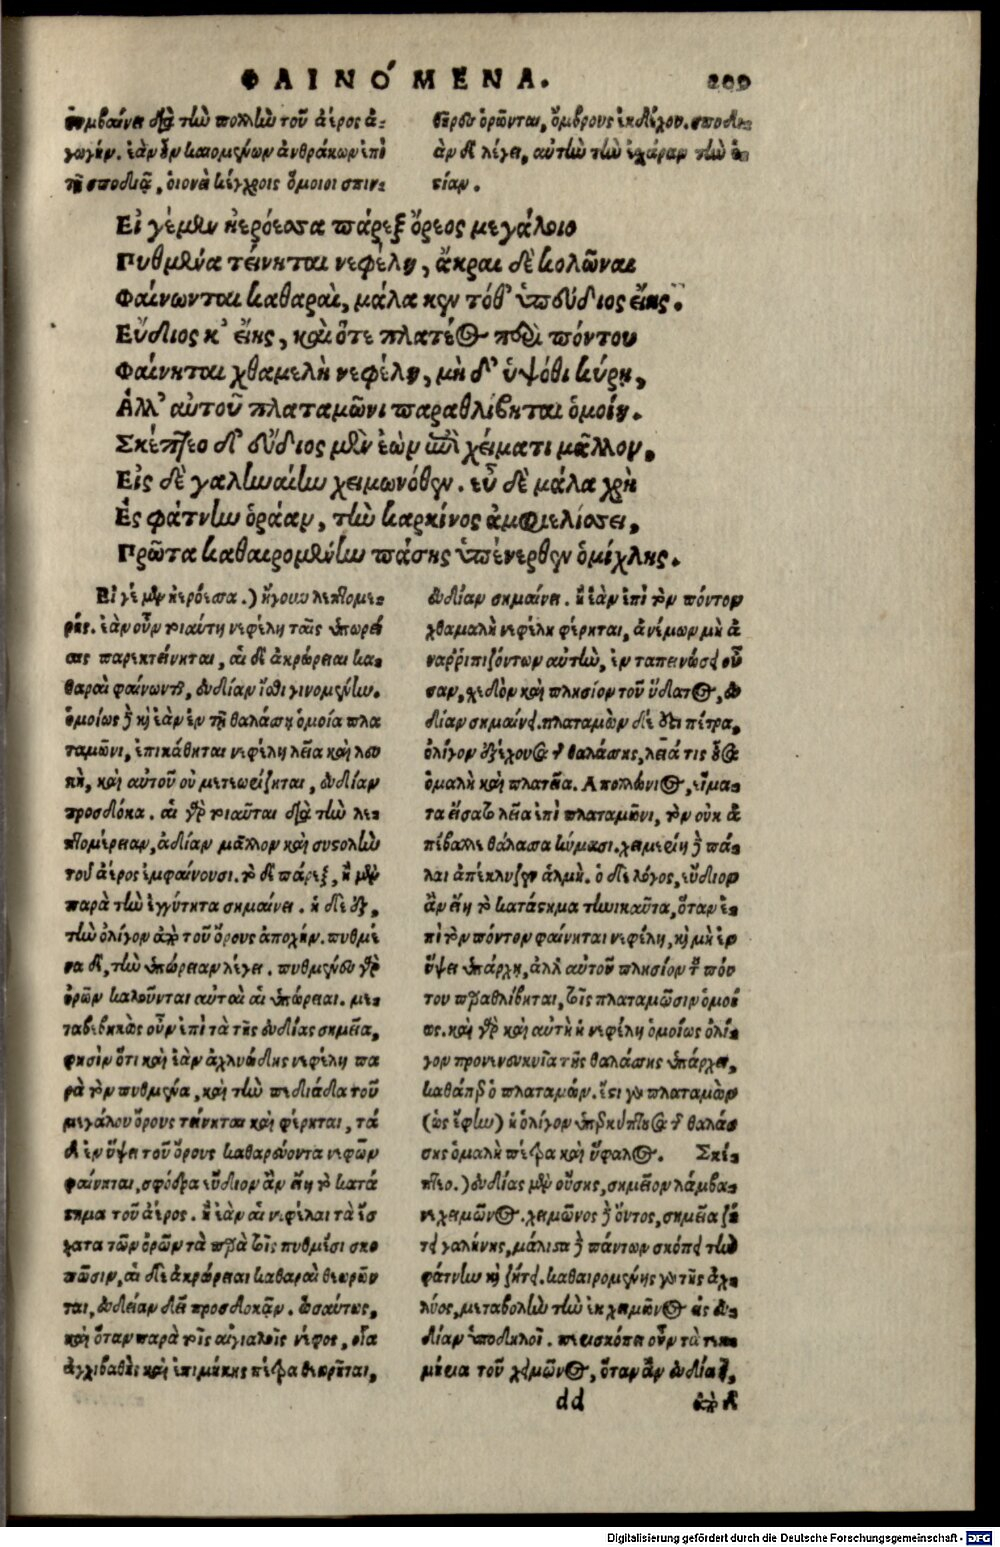 ΦΑΙΝΟ΄ΜΕΝΑ. 209
συμβαίνει διὰ τὴν πολλὴν τοῦ ἀέρος ἀ-
γωγήν. ἐὰν οὖν καιομένων ἀνθράκων ἐπὶ
τῇ σποδιᾷ, οἱονεὶ κέγχροις ὅμοιοι σπιν-
θῆρες ὁρῶνται, ὄμβρους ἐκδέχου. σποδι-
ὰν δὲ λέγει, αὐτὴν τὴν ἐχάραν τὴν ἑ-
στίαν.
Εἰ γέ μὲν ἠερόεσσα πάρεξ ὄρεος μεγάλοιο
Πυθμένα τείνηται νεφέλη, ἄκραι δὲ κολῶναι
Φαίνωνται καθαραὶ, μάλα κεν τόθ' ὑπεύδιος εἴης.
Εὔδιος κ' εἴης, καὶ ὅτε πλατέος παρὰ πόντου
Φαίνηται χθαμαλὴ νεφέλη, μὴ δ' ὑψόθι κύρῃ,
Ἀλλ' αὐτοῦ πλαταμῶνι παραθλίβηται ὁμοίη.
Σκέπτεο δ' εὔδιος μὲν ἐὼν ἐπὶ χείματι μᾶλλον,
Εἰς δὲ γαληναίην χειμωνόθεν. εὖ δὲ μάλα χρὴ
Ἐς φάτνην ὁράαν, τὴν καρκίνος ἀμφιελίσσει,
Πρῶτα καθαιρομένην πάσης ὑπένερθεν ὁμίχλης.
Εἰ γέ μὲν ἠερόεσσα.) ἤγουν λεπτομε-
ρής. ἐὰν οὖν τοιαύτη νεφέλη ταῖς ὑπωρεί
αις παρεκτείνηται, αἱ δὲ ἀκρώρειαι κα-
θαραὶ φαίνωνται, εὐδίαν ἴσθι γινομένην.
ὁμοίως δὲ κἢ ἐὰν ἐν τῇ θαλάσσῃ ὁμοία πλα
ταμῶνι, ἐπικάθηται νεφέλη λεῖα καὶ λευ
κὴ, καὶ αὐτοῦ οὐ μετεωρίζηται, εὐδίαν
προσδόκα. αἱ γὰρ τοιαῦται διὰ τὴν λε-
πτομέρειαν, εὐδίαν μᾶλλον καὶ συστολὴν
τοῦ ἀέρος ἐμφαίνουσι. τὸ δὲ πάρεξ, ἡ μὲν
παρὰ τὴν ἐγγύτητα σημαίνει. ἡ δὲ ἐξ,
τὴν ὀλίγον ἀπὸ τοῦ ὄρους ἀποχήν. πυθμέ
να δὲ, τὴν ὑπώρειαν λέγει. πυθμένες γὰρ
ὀρῶν καλοῦνται αὐταὶ αἱ ὑπώρειαι. με-
ταβεβηκὼς οὖν ἐπὶ τὰ τῆς εὐδίας σημεῖα,
φησὶν ὅτι καὶ ἐὰν ἀχλυώδης νεφέλη πα
ρὰ τὸν πυθμένα, καὶ τὴν πεδιάδα τοῦ
μεγάλου ὄρους τείνηται καὶ φέρηται, τὰ
δ' ἐν ὕψει τοῦ ὄρους καθαρεύοντα νεφῶν
φαίνηται, σφόδρα εὔδιον ἂν εἴη τὸ κατά
στημα τοῦ ἀέρος. ἢ ἐὰν αἱ νεφέλαι τὰ ἔσ
χατα τῶν ὀρῶν τὰ παρὰ τοῖς πυθμέσι σκε
πῶσιν, αἱ δὲ ἀκρώρειαι καθαραὶ θεωρῶν
ται, εὐδείαν δεῖ προσδοκᾷν. ὡσαύτως,
καὶ ὅταν παρὰ τοῖς αἰγιαλοῖς νέφος, οἷα
ἀγχιβαθὴς καὶ ἐπιμήκης πέτρα θεωρῆται,
εὐδίαν σημαίνει. ἢ ἐὰν ἐπὶ τὸν πόντον
χθαμαλὴ νεφέλη φέρηται, ἀνέμων μὴ ἀ
ναῤῥιπιζόντων αὐτὴν, ἐν ταπεινώσει οὖ
σαν, σχεδὸν καὶ πλησίον τοῦ ὕδατος, εὐ
δίαν σημαίνει. πλαταμὼν δέ ἐστι πέτρα,
ὀλίγον ἐξέχουσα τῆς θαλάσσης, λεία τις οὖσα
ὁμαλὴ καὶ πλατεῖα. Απολλώνιος, εἵμα-
τα εἵσατο λεῖα ἐπὶ πλαταμῶνι, τὸν οὐκ ἐ
πέβαλλε θάλασσα κύμασι. χειμερίη δὲ πά-
λαι ἀπέκλυζεν ἅλμη. ὁ δὲ λόγος, εὔδιον
ἂν εἴη τὸ κατάστημα τηνικαῦτα, ὅταν ἐ-
πὶ τὸν πόντον φαίνηται νεφέλη, κὴ μὴ ἐν
ὕψει ὑπάρχῃ, ἀλλ' αὐτοῦ πλησίον τοῦ πόν
του παραθλίβηται, τοῖς πλαταμῶσιν ὁμοί
ως. καὶ γὰρ καὶ αὐτὴ ἡ νεφέλη ὁμοίως ὀλί-
γον προνενευκυῖα τῆς θαλάσσης ὑπάρχει,
καθάπερ ὁ πλαταμών. ἔστι γὰρ πλαταμὼν
(ὡς ἔφην) ἡ ὀλίγον ὑπερκύπτουσα τῆς θαλάσ
σης ὁμαλὴ πέτρα καὶ ὕφαλος. Σκέ-
πτεο.) εὐδίας μὲν οὔσης, σημεῖον λάμβα-
νε χειμῶνος. χειμῶνος δὲ ὄντος, σημεῖα ζή
τει γαλήνης, μάλιστα δὲ πάντων σκόπει τὴν
φάτνην κὴ ζήτει. καθαιρομένης γὰρ τῆς ἀχ-
λύος, μεταβολὴν τὴν ἐκ χειμῶνος εἰς εὐ-
δίαν ὑποδηλοῖ. περισκόπει οὖν τὰ τεκ-
μήρια τοῦ χειμῶνος, ὅταν ἂν εὐδίαζῃ,
dd ἀπὸ δ
Digitalisierung gefördert durch die Deutsche Forschungsgemeinschaft - DFG